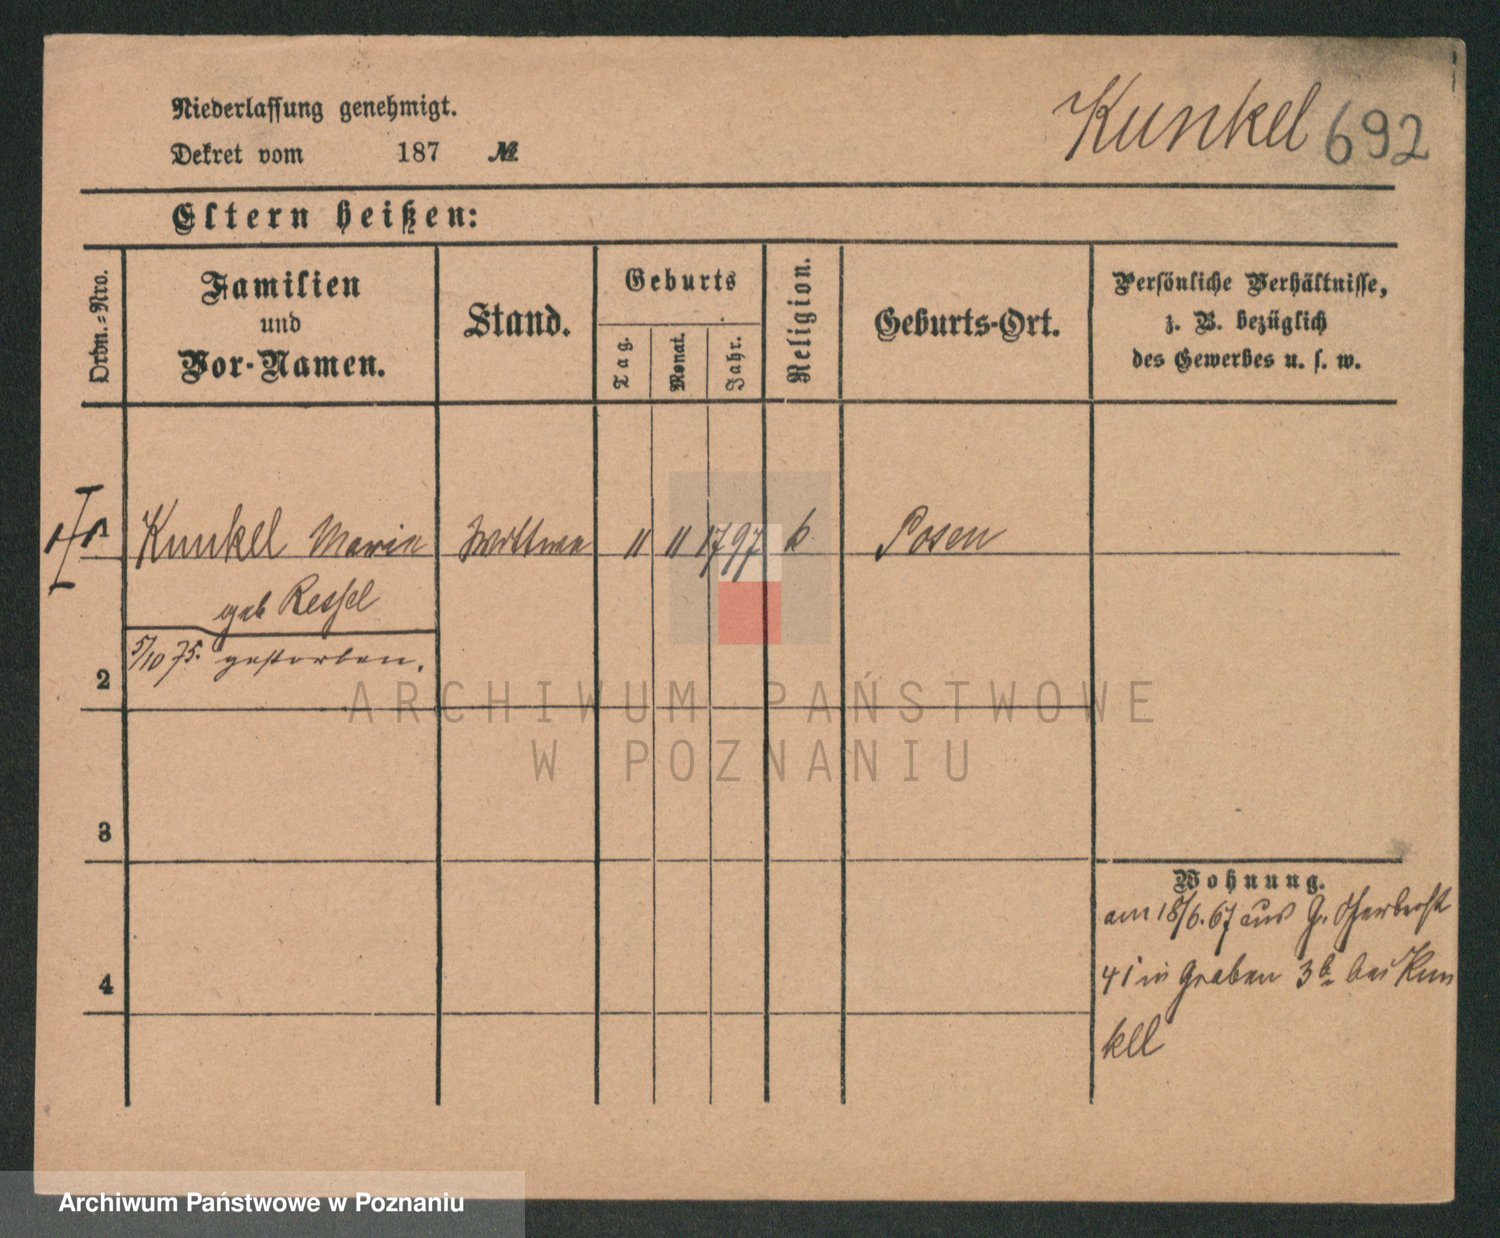 Niederlassung genehmigt.
Dekret vom 187 №
Kunkel 692
Eltern heißen:
Ordn.-Nro.
Familien
und
Vor-Namen.
Stand.
Geburts
Tag.
Monat.
Jahr.
Religion.
Geburts-Ort.
Persönliche Verhältnisse,
z. B. bezüglich
des Gewerbes u. s. w.
1 Kunkel Marie Wittwe " " 1797 k Posen
geb Ressel
5/10 75. gestorben.
2
3
4
Wohnung.
am 18/6. 67 aus G.
41 in Graben 3 b bei Kun
kell
ARCHIWUM PAŃSTWOWE
W POZNANIU
Archiwum Państwowe w Poznaniu